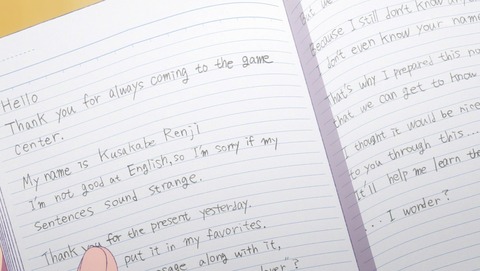 Hello
Thank you for always coming to the game
center.
My name is Kusakabe Renji
I'm not good at English, so I'm sorry if my
sentences sound strange.
Thank you for the present yesterday.
put it in my favorites.
along with it,
?
Because I still don't know
don't even know your name
That's why I prepared this
that we can get to know
I thought it would be nice
to you through this...
It'll help me learn the
...I wonder?